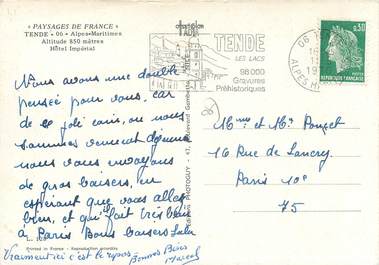 « PAYSAGES DE FRANCE »
TENDE • 06 • Alpes-Maritimes
Altitude 850 mètres
Hôtel Impérial
TENDE
LES LACS
98.000
Gravures
Préhistoriques
06
ALPES
0,30
REPUBLIQUE FRANÇAISE
Nous avons une double
pensée pour vous, car
de ce joli coin, ou nous
sommes venues
nous vous envoyons
de gros baisers, en
espérant que vous allez
bien, et qu'il fait très beau
à Paris Bons baisers
Vraiment ici c'est le repos Bonnes Bises
Marcel
Mme et Mr Pouzet
16 Rue de Lancry
Paris 10e
75
PHOTOGUY - 47, Boulevard Gambetta
Printed in France - Reproduction interdite